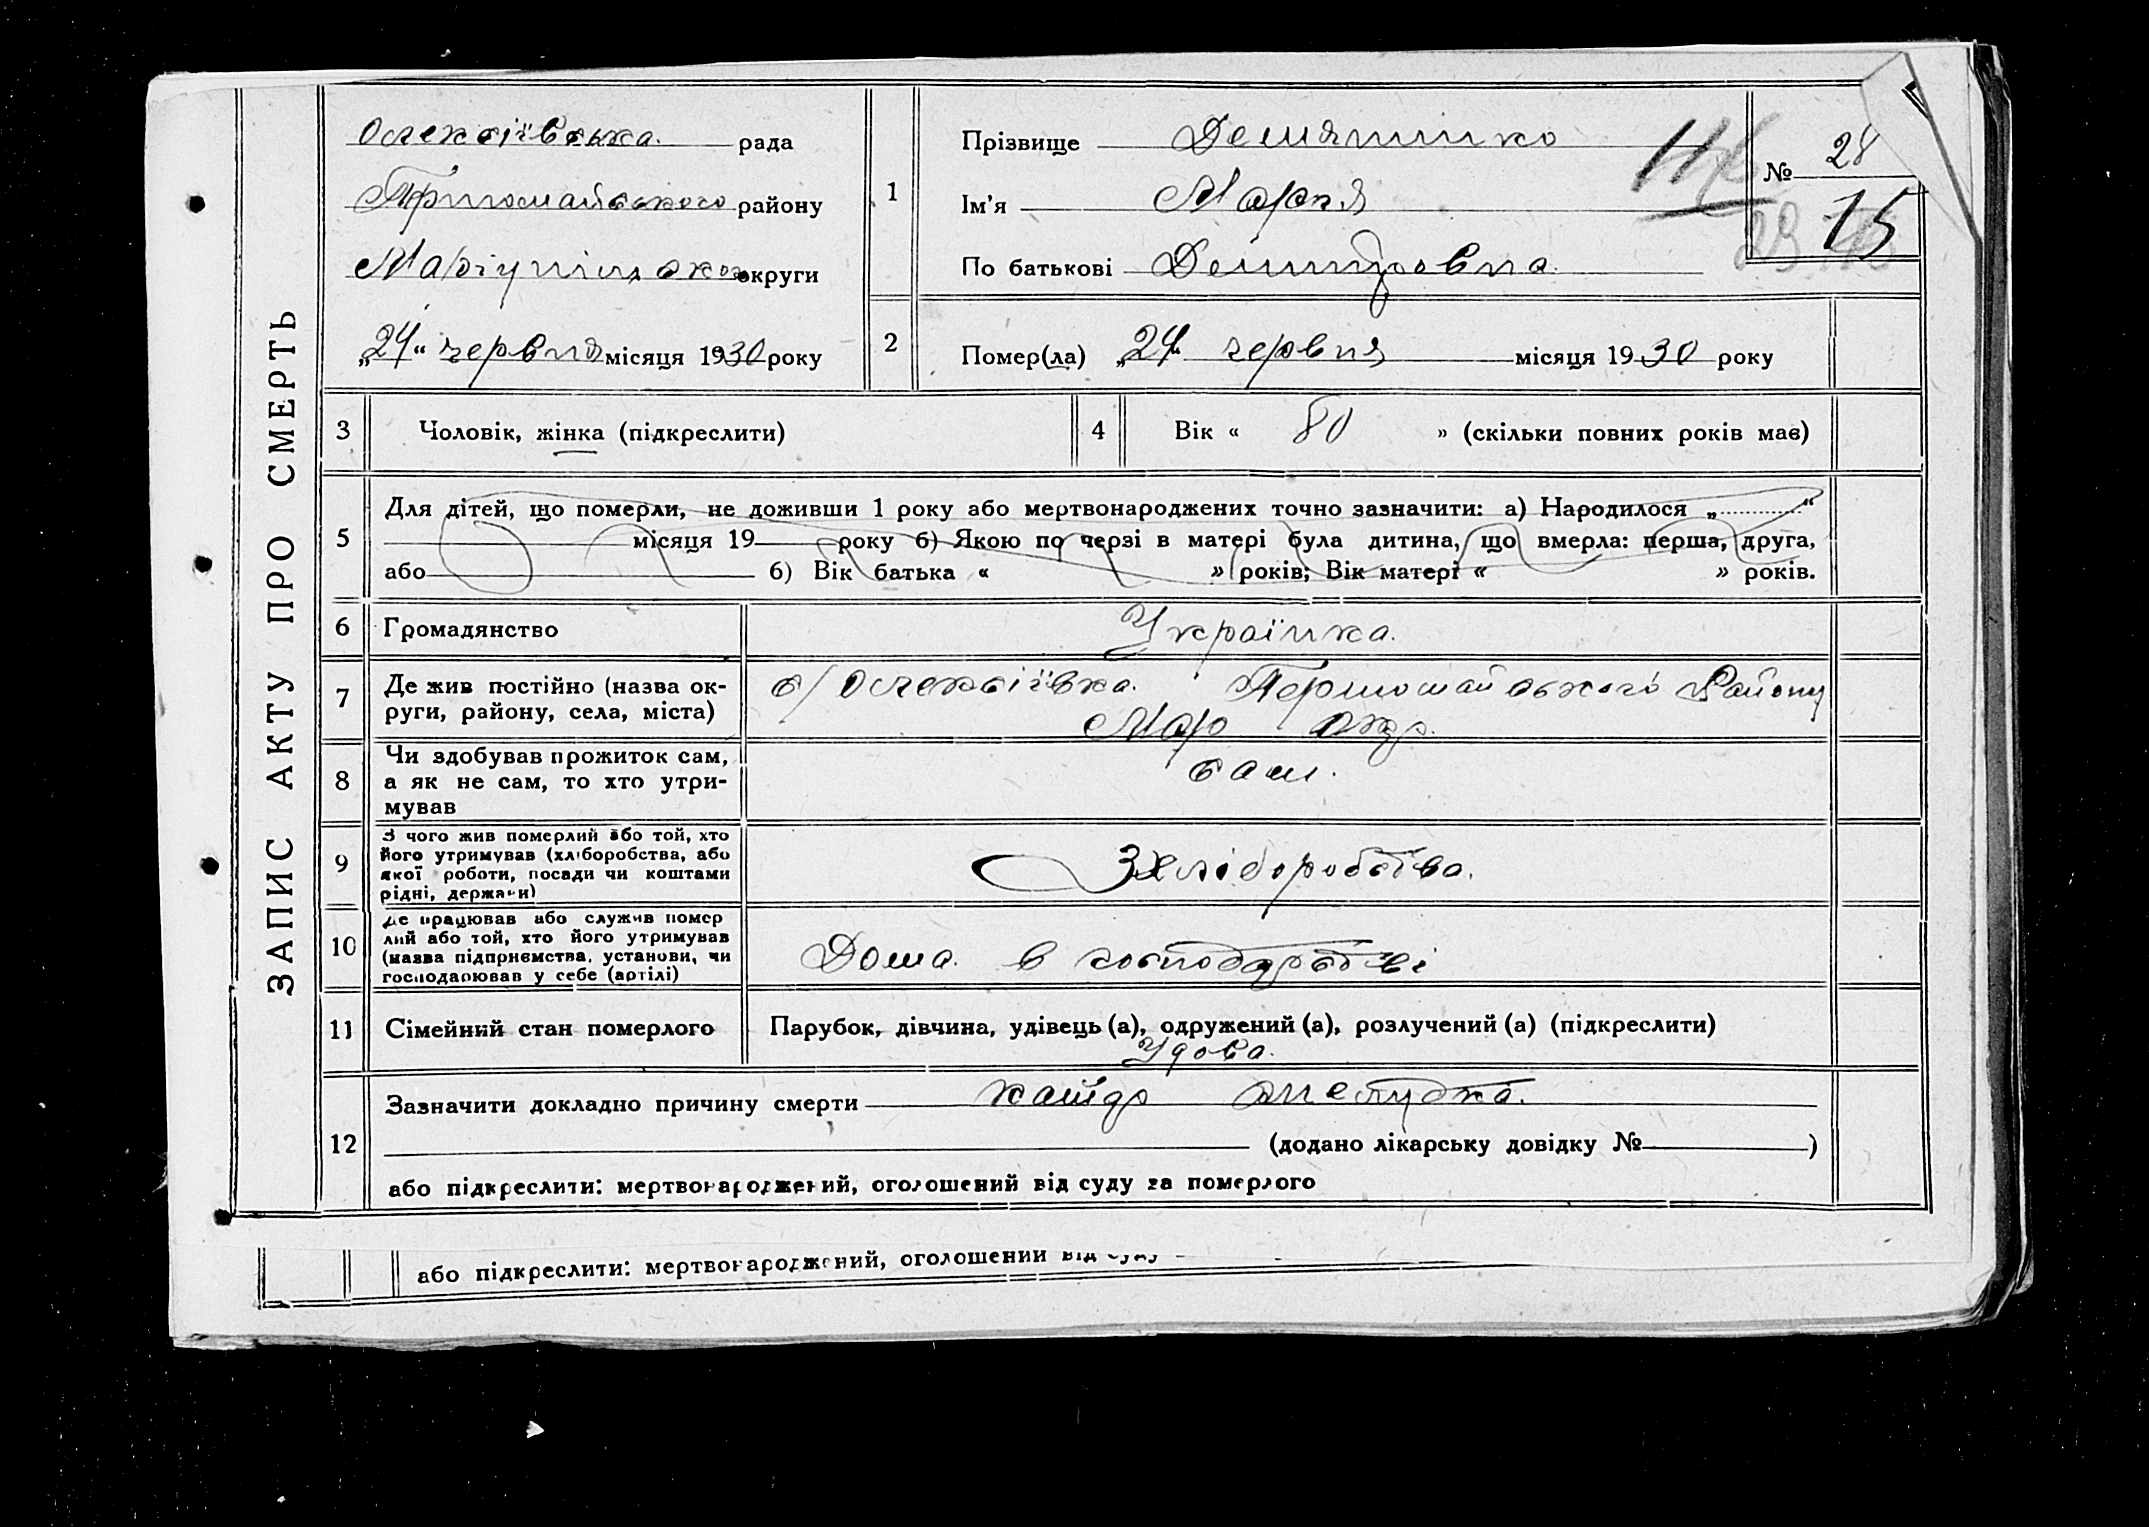 ЗАПИС АКТУ ПРО СМЕРТЬ
Олексіївська рада
Першомайського району
Маріупільської округи
„24“ червня місяця 1930 року
1
Прізвище Демяненко
Ім'я Марія
По батькові Демитровна
№ 28
15
2
Помер(ла) „24“ червня місяця 1930 року
3 Чоловік, жінка (підкреслити)
4 Вік « 80 » (скільки повних років має)
5
Для дітей, що померли, не доживши 1 року або мертвонароджених точно зазначити: а) Народилося „ “
місяця 19 року б) Якою по черзі в матері була дитина, що вмерла: перша, друга,
або б) Вік батька « » років; Вік матері « » років.
6 Громадянство Українка.
7 Де жив постійно (назва ок-
руги, району, села, міста)
с/ Олексіївка. Першомайського Району
Мар окр.
8 Чи здобував прожиток сам,
а як не сам, то хто утри-
мував
сам.
9 З чого жив померлий або той, хто
його утримував (хліборобства, або
якої роботи, посади чи коштами
рідні, держави)
З хліборобства.
10 Де працював або служив помер
лий або той, хто його утримував
(назва підприємства, установи, чи
господарював у себе (артілі)
Дома в господарстві
11 Сімейний стан померлого Парубок, дівчина, удівець (а), одружений (а), розлучений (а) (підкреслити)
Удова.
12 Зазначити докладно причину смерти катар желудка.
(додано лікарську довідку № )
або підкреслити: мертвонароджений, оголошений від суду за померлого
або підкреслити: мертвонароджений, оголошений від суду